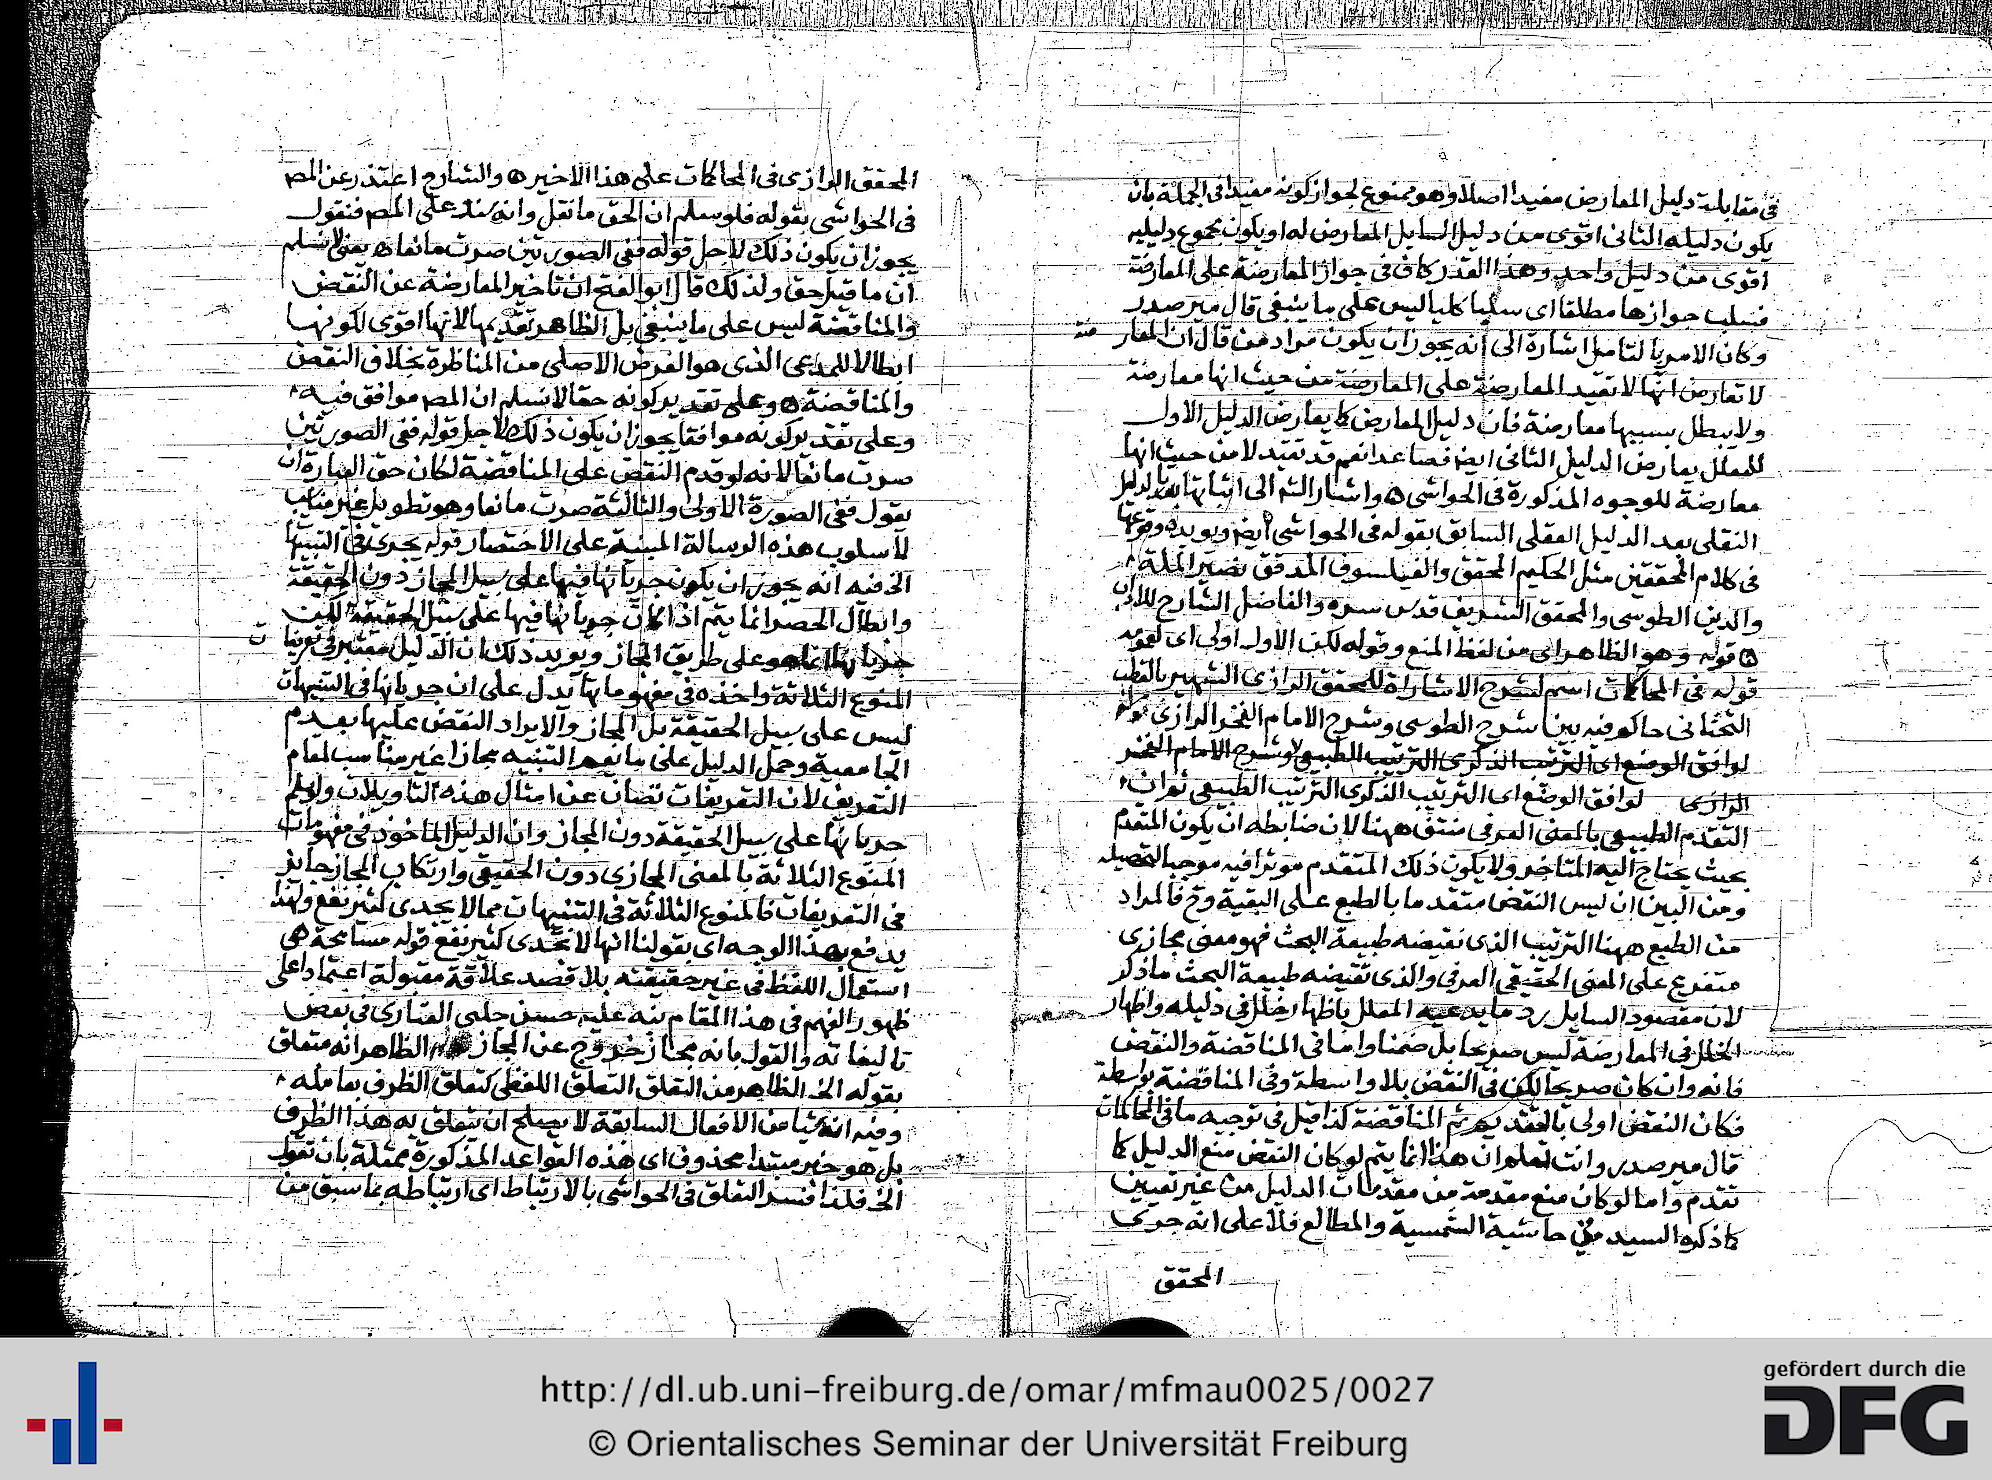 في مقابلة دليل المعارض مفيدا اصلا وهو ممنوع لجواز كونه مفيدا في الجملة بان
يكون دليله الثاني اقوى من دليل السايل المعارض له او يكون مجموع دليليه
اقوى من دليل واحد وهذا القدر كاف في جواز المعارضة على المعارضة
فسلب جوازها مطلقا اى سلبا كليا ليس على ما ينبغي قال مير صدر
وكان الامر بالتامل اشارة الى انه يجوز ان يكون مراد من قال ان المعار
ضة
لا تعارض انها لا تفيد المعارضة على المعارضة من حيث انها معارضة
ولا يبطل بسببها معارضة فان دليل المعارض كما يعارض الدليل الاول
للمعلل يعارض الدليل الثاني ايض فصاعدا نعم قد تفيد لا من حيث انها
معارضة للوجوه المذكورة في الحواشي واشار الش الى اثباتها بالدليل
النقلي بعد الدليل العقلي السابق بقوله في الحواشي ايض ويويده وقوعها
في كلام المحققين مثل الحكيم المحقق والفيلسوف المدقق نصير الملة
والدين الطوسي والمحقق الشريف قدس سره والفاضل الشارح للاداب
قوله وهو الظاهر اى من لفظ المنع وقوله لكن الاول اولى اى
قوله في المحاكمات اسم لشرح الاشارات للمحقق الرازى الشهير بالقطب
التحتاني حاكم فيه بين شرح الطوسي وشرح الامام الفخر الرازى قوله
لوافق الوضع اى الترتيب الذكرى الترتيب الطبيعي وشرح الامام الفخر
الرازى لوافق الوضع اى الترتيب الذكرى الترتيب الطبيعي ثم ان
التقدم الطبيعي بالمعنى العرفي منتف ههنا لان ضابطه ان يكون المتقدم
بحيث يحتاج اليه المتاخر ولا يكون ذلك المتقدم موثرا فيه موجبا لتحصيله
ومن البين ان ليس النقض متقدما بالطبع على البقية وح فالمراد
من الطبع ههنا الترتيب الذى تقتضيه طبيعة البحث فهو معنى مجازى
متفرع على المعنى الحقيقي العرفي والذى تقتضيه طبيعة البحث ما ذكر
لان مقصود السايل رد ما يدعيه المعلل باظهار خلل في دليله واظهار
الخلل في المعارضة ليس صريحا بل ضمنا واما في المناقضة والنقض
فانه وان كان صريحا لكن في النقض بلا واسطة وفي المناقضة بواسطة
فكان النقض اولى بالتقديم ثم المناقضة كذا قيل في توجيه ما في المحاكمات
قال مير صدر وانت تعلم ان هذا انما يتم لو كان النقض منع الدليل كما
تقدم واما لو كان منع مقدمة من مقدمات الدليل من غير تعيين
كما ذكره السيد في حاشية الشمسية والمطالع فلا على انه جرى
المحقق
المحقق الرازى في المحاكمات على هذا الاخير والشارح اعتذر عن المص
في الحواشي بقوله فلو سلم ان الحق ما نقل وانه سند على المص فنقول
يجوز ان يكون ذلك لاجل قوله ففي الصورتين صرت مانعا يعني لا نسلم
ان ما قيل حق ولذلك قال ابو الفتح ان تاخير المعارضة عن النقض
والمناقضة ليس على ما ينبغي بل الظاهر تقديمها لانها اقوى لكونها
ابطالا للمدعى الذى هو الغرض الاصلي من المناظرة بخلاف النقض
والمناقضة وعلى تقدير كونه حقا لا نسلم ان المص موافق فيه
وعلى تقدير كونه موافقا يجوز ان يكون ذلك لاجل قوله ففي الصورتين
صرت مانعا لانه لو قدم النقض على المناقضة لكان حق العبارة ان
يقول ففي الصورة الاولى والثالثة صرت مانعا وهو تطويل غير مناسب
لاسلوب هذه الرسالة المبنية على الاختصار قوله يجرى في التنبيهات
الخ فيه انه يجوز ان يكون جريانها فيها على سبيل المجاز دون الحقيقة
وابطال الحصر انما يتم اذا كان جريانها فيها على سبيل الحقيقة لكن
جريانها انما هو على طريق المجاز ويويد ذلك ان الدليل معتبر في تعريفا
ت
المنوع الثلاثة واخذه في مفهوماتها يدل على ان جريانها في التنبيهات
ليس على سبيل الحقيقة بل المجاز والا يراد النقض عليها بعدم
الجامعية وحمل الدليل على ما يعم التنبيه مجازا غير مناسب لمقام
التعريف لان التعريفات تصان عن امثال هذه التاويلات ولو سلم
جريانها على سبيل الحقيقة دون المجاز وان الدليل الماخوذ في مفهومات
المنوع الثلاثة بالمعنى المجازى دون الحقيقي وارتكاب المجاز جايز
في التعريفات فالمنوع الثلاثة في التنبيهات مما لا يجدى كثير نفع ولهذا
يدفع بهذا الوجه اى بقولنا انها لا تجدى كثير نفع قوله مسامحة هي
استعمال اللفظ في غير حقيقته بلا قصد علاقة مقبولة اعتمادا على
ظهور الفهم في هذا المقام نبه عليه حسن جلبي الفنارى في بعض
تاليفاته والقول بانه مجاز خروج عن المجاز الظاهر انه متعلق
بقوله الخ الظاهر من التعلق التعلق اللفظي كتعلق الظرف بعامله
وفيه ان شيا من الافعال السابقة لا يصلح ان يتعلق به هذا الظرف
بل هو خبر مبتدا محذوف اى هذه القواعد المذكورة ممثلة بان تقول
الخ فلذا فسر التعلق في الحواشي بالارتباط اى ارتباطه بما سبق من
http://dl.ub.uni-freiburg.de/omar/mfmau0025/0027
© Orientalisches Seminar der Universität Freiburg
gefördert durch die
DFG